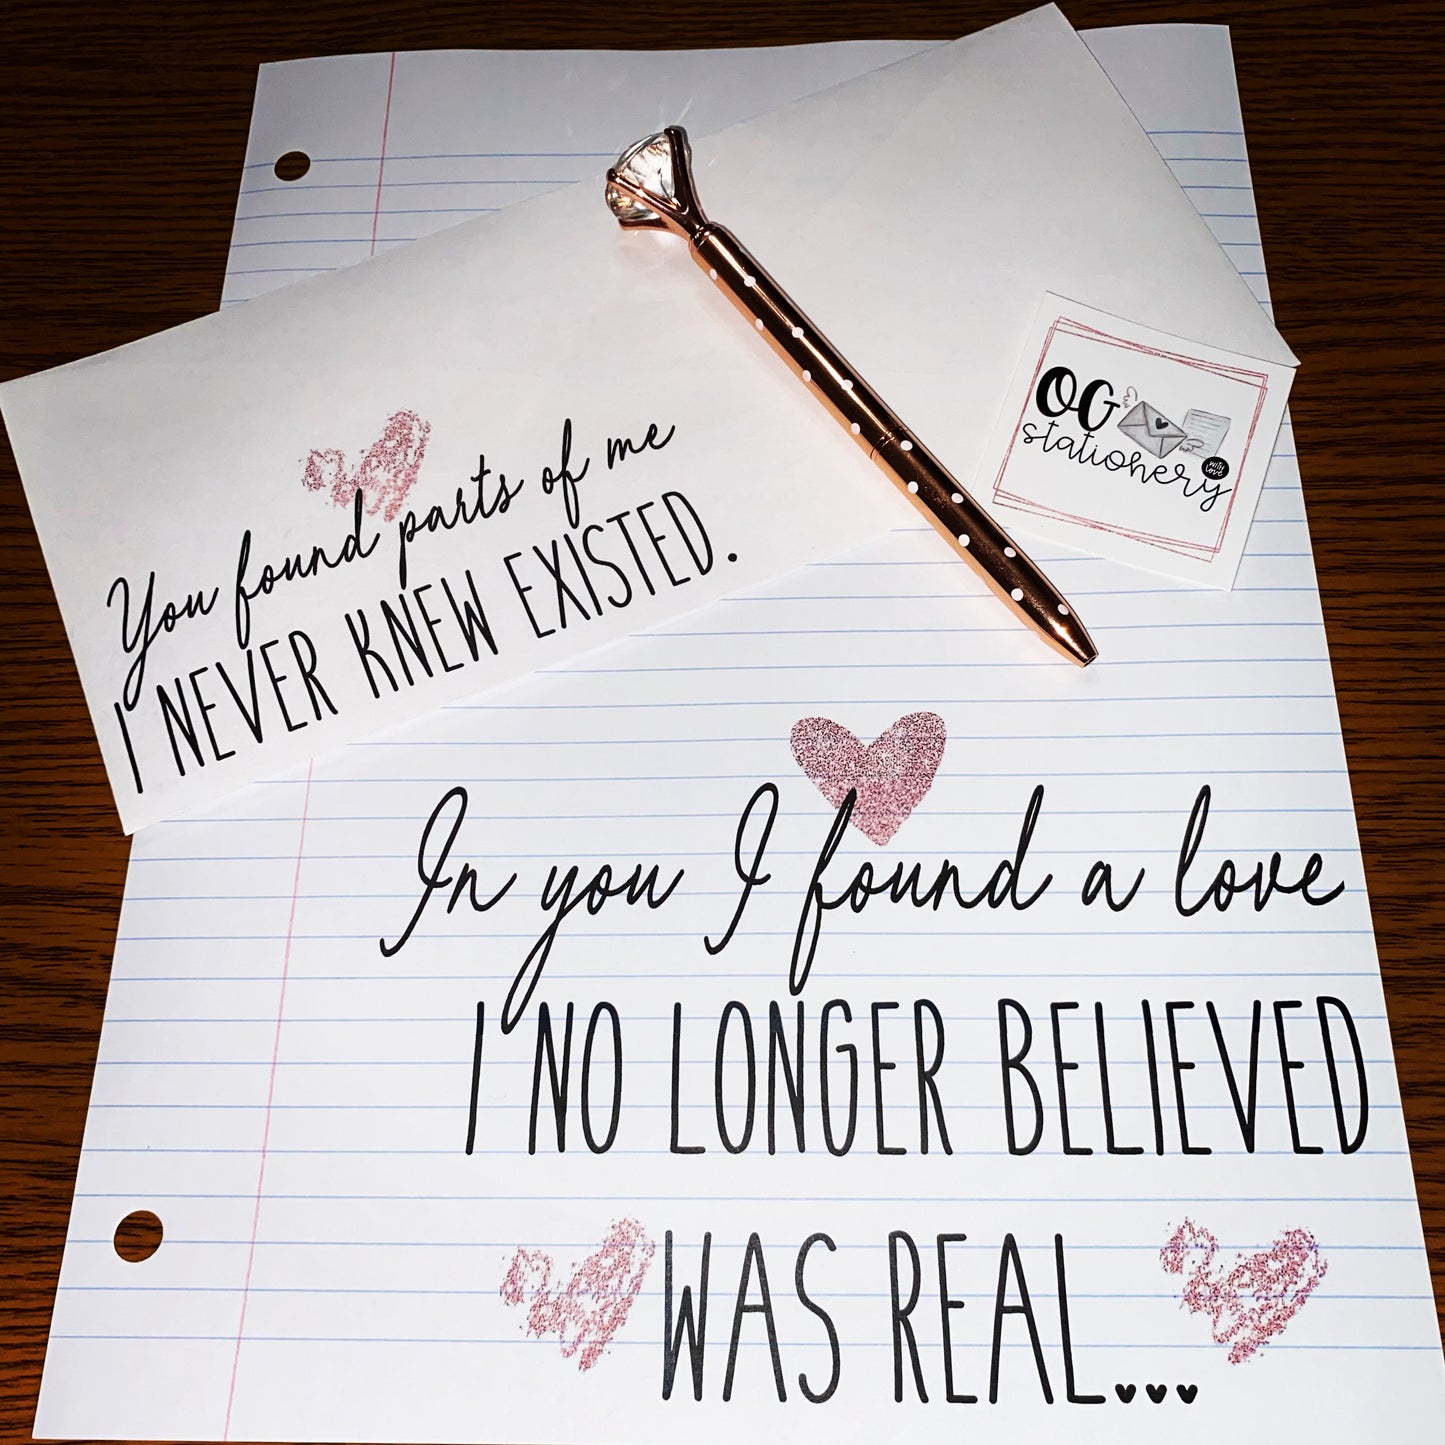 You found parts of me
I NEVER KNEW EXISTED.
OG
stationery
with
love
In you I found a love
I NO LONGER BELIEVED
WAS REAL...